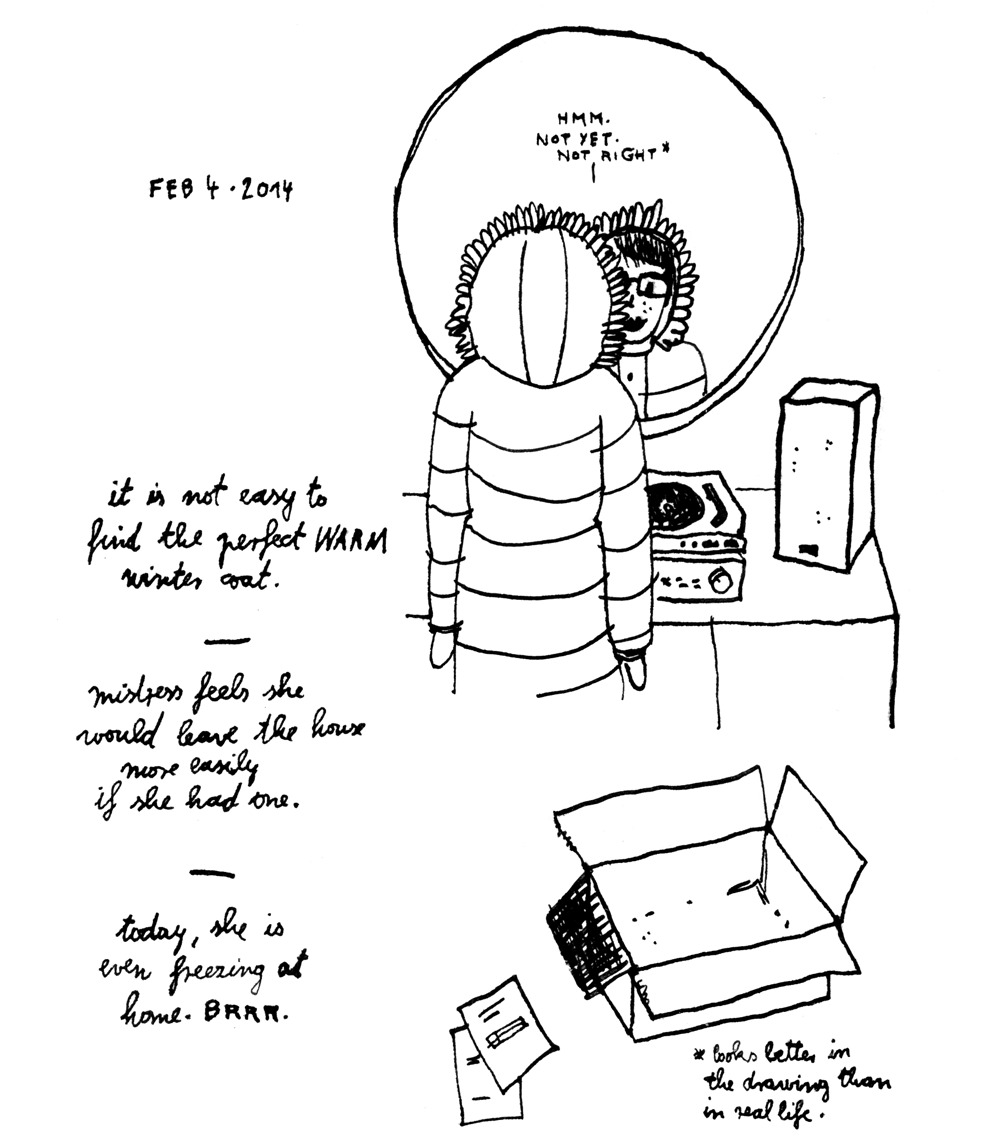 HMM.
NOT YET.
NOT RIGHT*
FEB 4 · 2014
it is not easy to
find the perfect WARM
winter coat.
mistress feels she
would leave the house
more easily
if she had one.
today, she is
even freezing at
home. BRRR.
* looks better in
the drawing than
in real life.